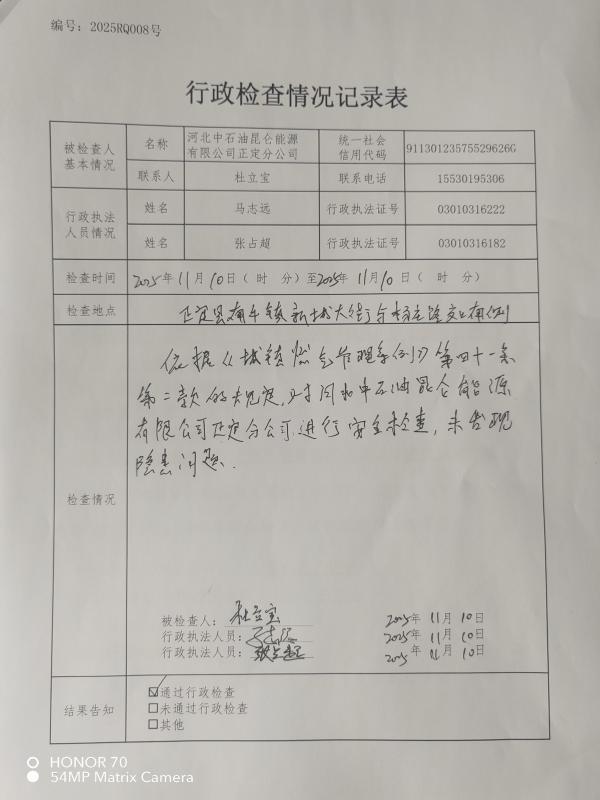 编号：2025RQ008号
行政检查情况记录表
被检查人
基本情况
名称
河北中石油昆仑能源
有限公司正定分公司
统一社会
信用代码
91130123575529626G
联系人
杜立宝
联系电话
15530195306
行政执法
人员情况
姓名
马志远
行政执法证号
03010316222
姓名
张占超
行政执法证号
03010316182
检查时间
2025年11月10日（ 时 分）至2025年11月10日（ 时 分）
检查地点
正定县南牛镇新城大街与 路交口南侧
检查情况
依据《城镇燃气管理条例》第四十一条
第二款的规定，对河北中石油昆仑能源
有限公司正定分公司进行安全检查，未发现
隐患问题.
被检查人：杜立宝 2025年11月10日
行政执法人员：马志远 2025年11月10日
行政执法人员：张占超 2025年11月10日
结果告知
☑通过行政检查
☐未通过行政检查
☐其他
HONOR 70
54MP Matrix Camera